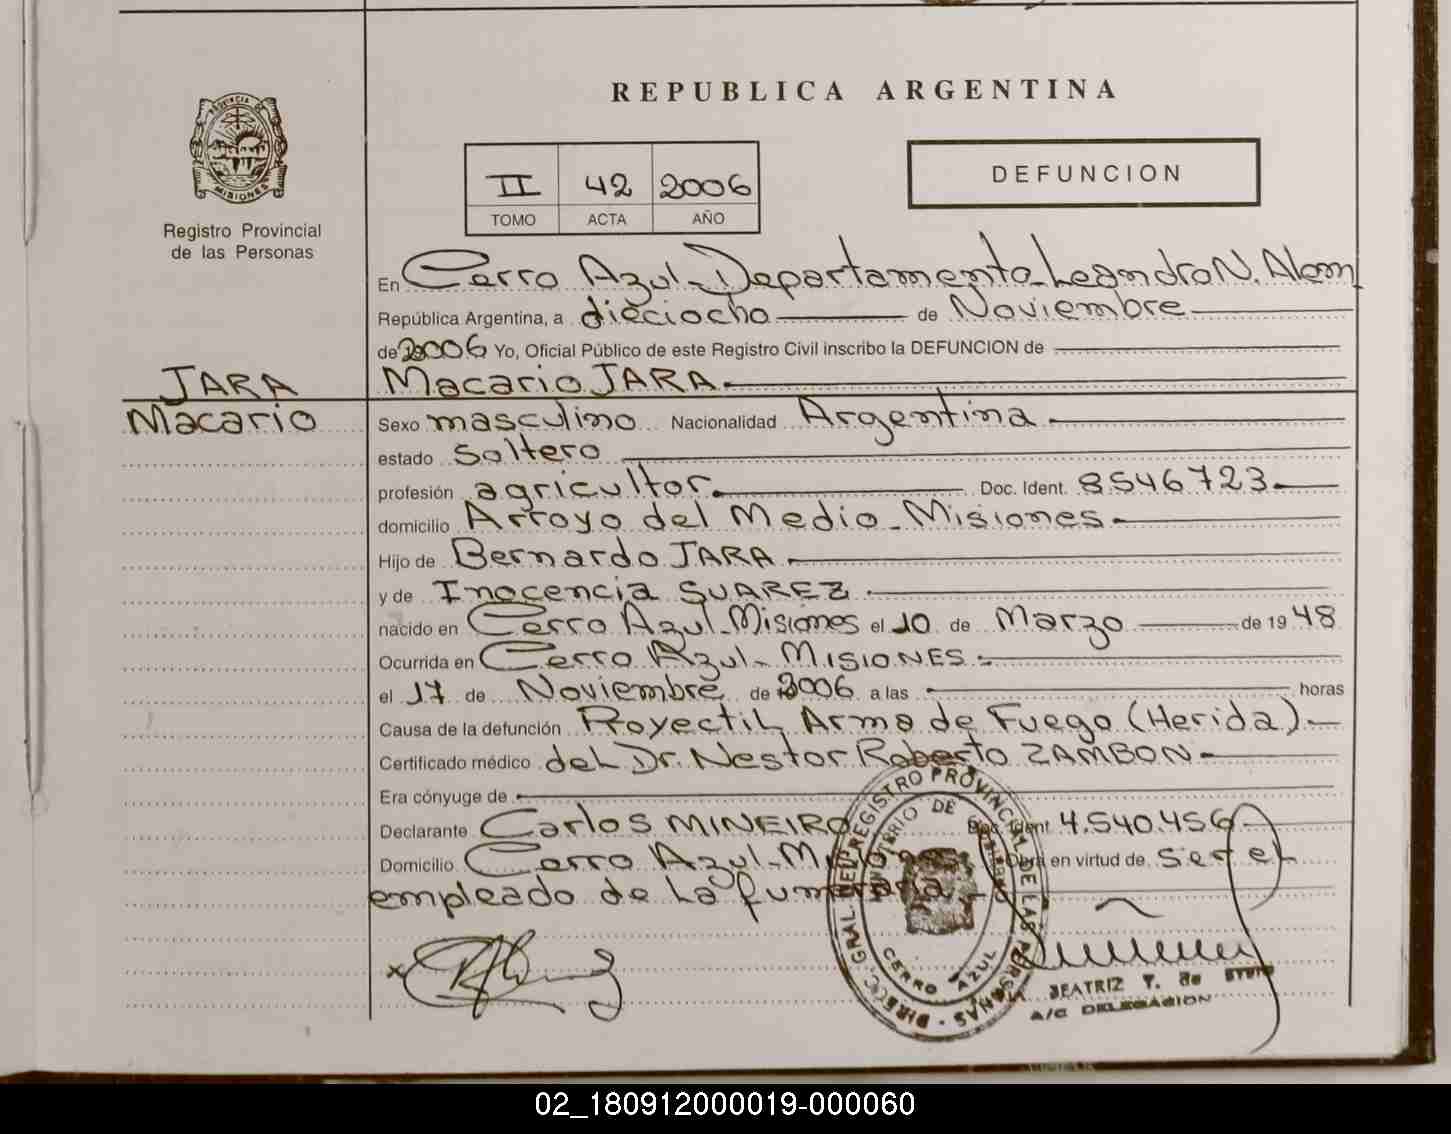 REPUBLICA ARGENTINA
PROVINCIA DE
MISIONES
Registro Provincial
de las Personas
II 42 2006
TOMO ACTA AÑO
DEFUNCION
En Cerro Azul - Departamento Leandro N. Alem
República Argentina, a dieciocho de Noviembre
de 2006 Yo, Oficial Público de este Registro Civil inscribo la DEFUNCION de
JARA
Macario JARA
Macario
Sexo masculino Nacionalidad Argentina
estado Soltero
profesión agricultor. Doc. Ident. 8546723
domicilio Arroyo del Medio - Misiones
Hijo de Bernardo JARA
y de Inocencia SUAREZ
nacido en Cerro Azul - Misiones el 10 de Marzo de 1948
Ocurrida en Cerro Azul - MISIONES
el 17 de Noviembre de 2006 a las horas
Causa de la defunción Proyectil Arma de Fuego (Herida)
Certificado médico del Dr. Nestor Roberto ZAMBON
Era cónyuge de
Declarante Carlos MINEIRO Doc. Ident 4.540.456
Domicilio Cerro Azul - Misiones Obra en virtud de ser el
empleado de la funeraria
DIRECC. GRAL. DEL REGISTRO PROVINCIAL DE LAS PERSONAS
MINISTERIO DE GOBIERNO
CERRO AZUL
BEATRIZ T. de
A/C DELEGACION
02_180912000019-000060